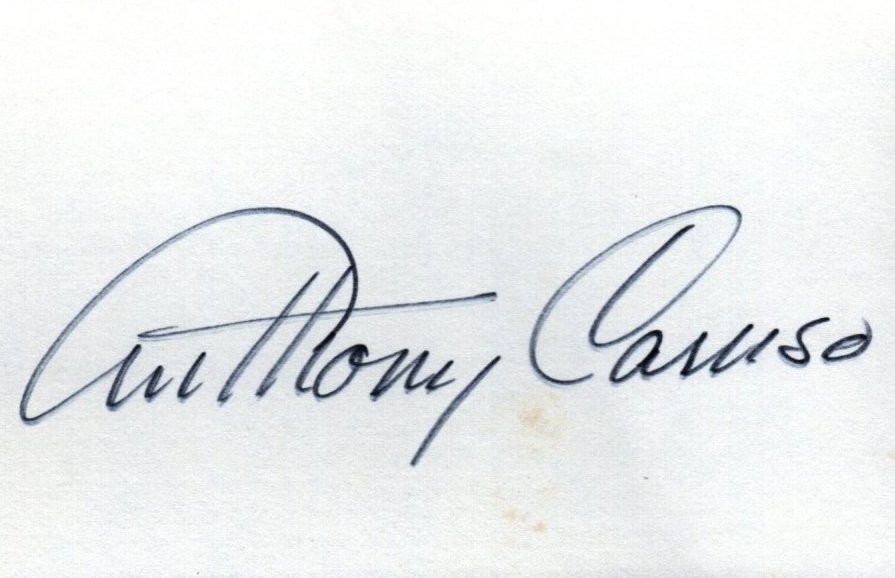 Anthony Caruso